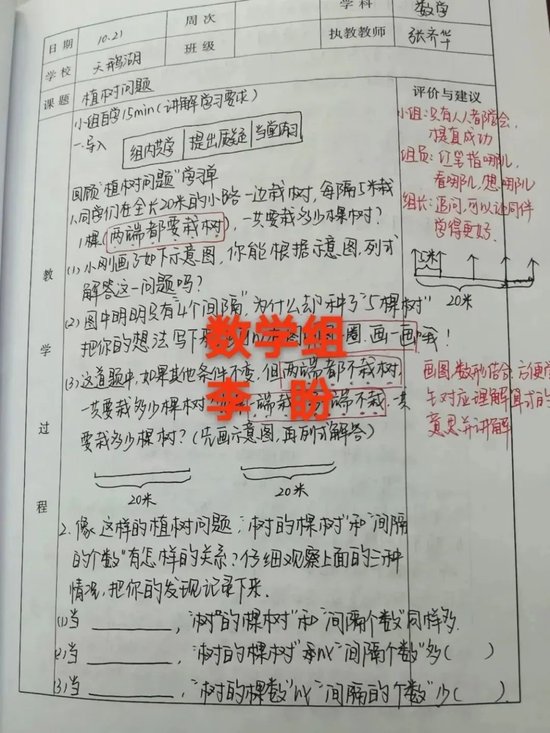 日期 10.21 周次 学科 数学
学校 天鹅湖 班级 执教教师 张齐华
课题 植树问题 评价与建议
小组自学15min(讲解学习要求)
一.导入 组内共学 提出质疑 当堂练习
回顾"植树问题"学习单
1.同学们在全长20米的小路一边栽树,每隔5米栽
1棵(两端都要栽树),一共要栽多少棵树?
(1)小刚画了如下示意图,你能根据示意图,列式
解答这一问题吗?
(2)图中明明只有"4个间隔"为什么却种了"5棵树"
把你的想法写下来 圈画一画哦!
(3)这道题中,如果其他条件不变,但两端都不栽树,
一共要栽多少棵树 端栽 端不栽,共
要栽多少棵树?(先画示意图,再列式解答)
20米 20米
2.像这样的植树问题,"树的棵树"和"间隔
的个数"有怎样的关系?仔细观察上面的三种
情况,把你的发现记录下来.
(1)当 ,"树"的棵树"和"间隔个数"同样多.
(2)当 ,"树的棵树" 比"间隔个数"多( )
(3)当 ,"树的棵数"比"间隔的个数"少( )
教学过程
小组:只有人人都学会,
才是真成功
组员:红笔指哪儿,
看哪儿,想哪儿
组长:追问,可以让同伴
学得更好.
5米
20米
画图,数形结合,方便学
生对应理解算式的
意思并讲解
数学组
李 盼